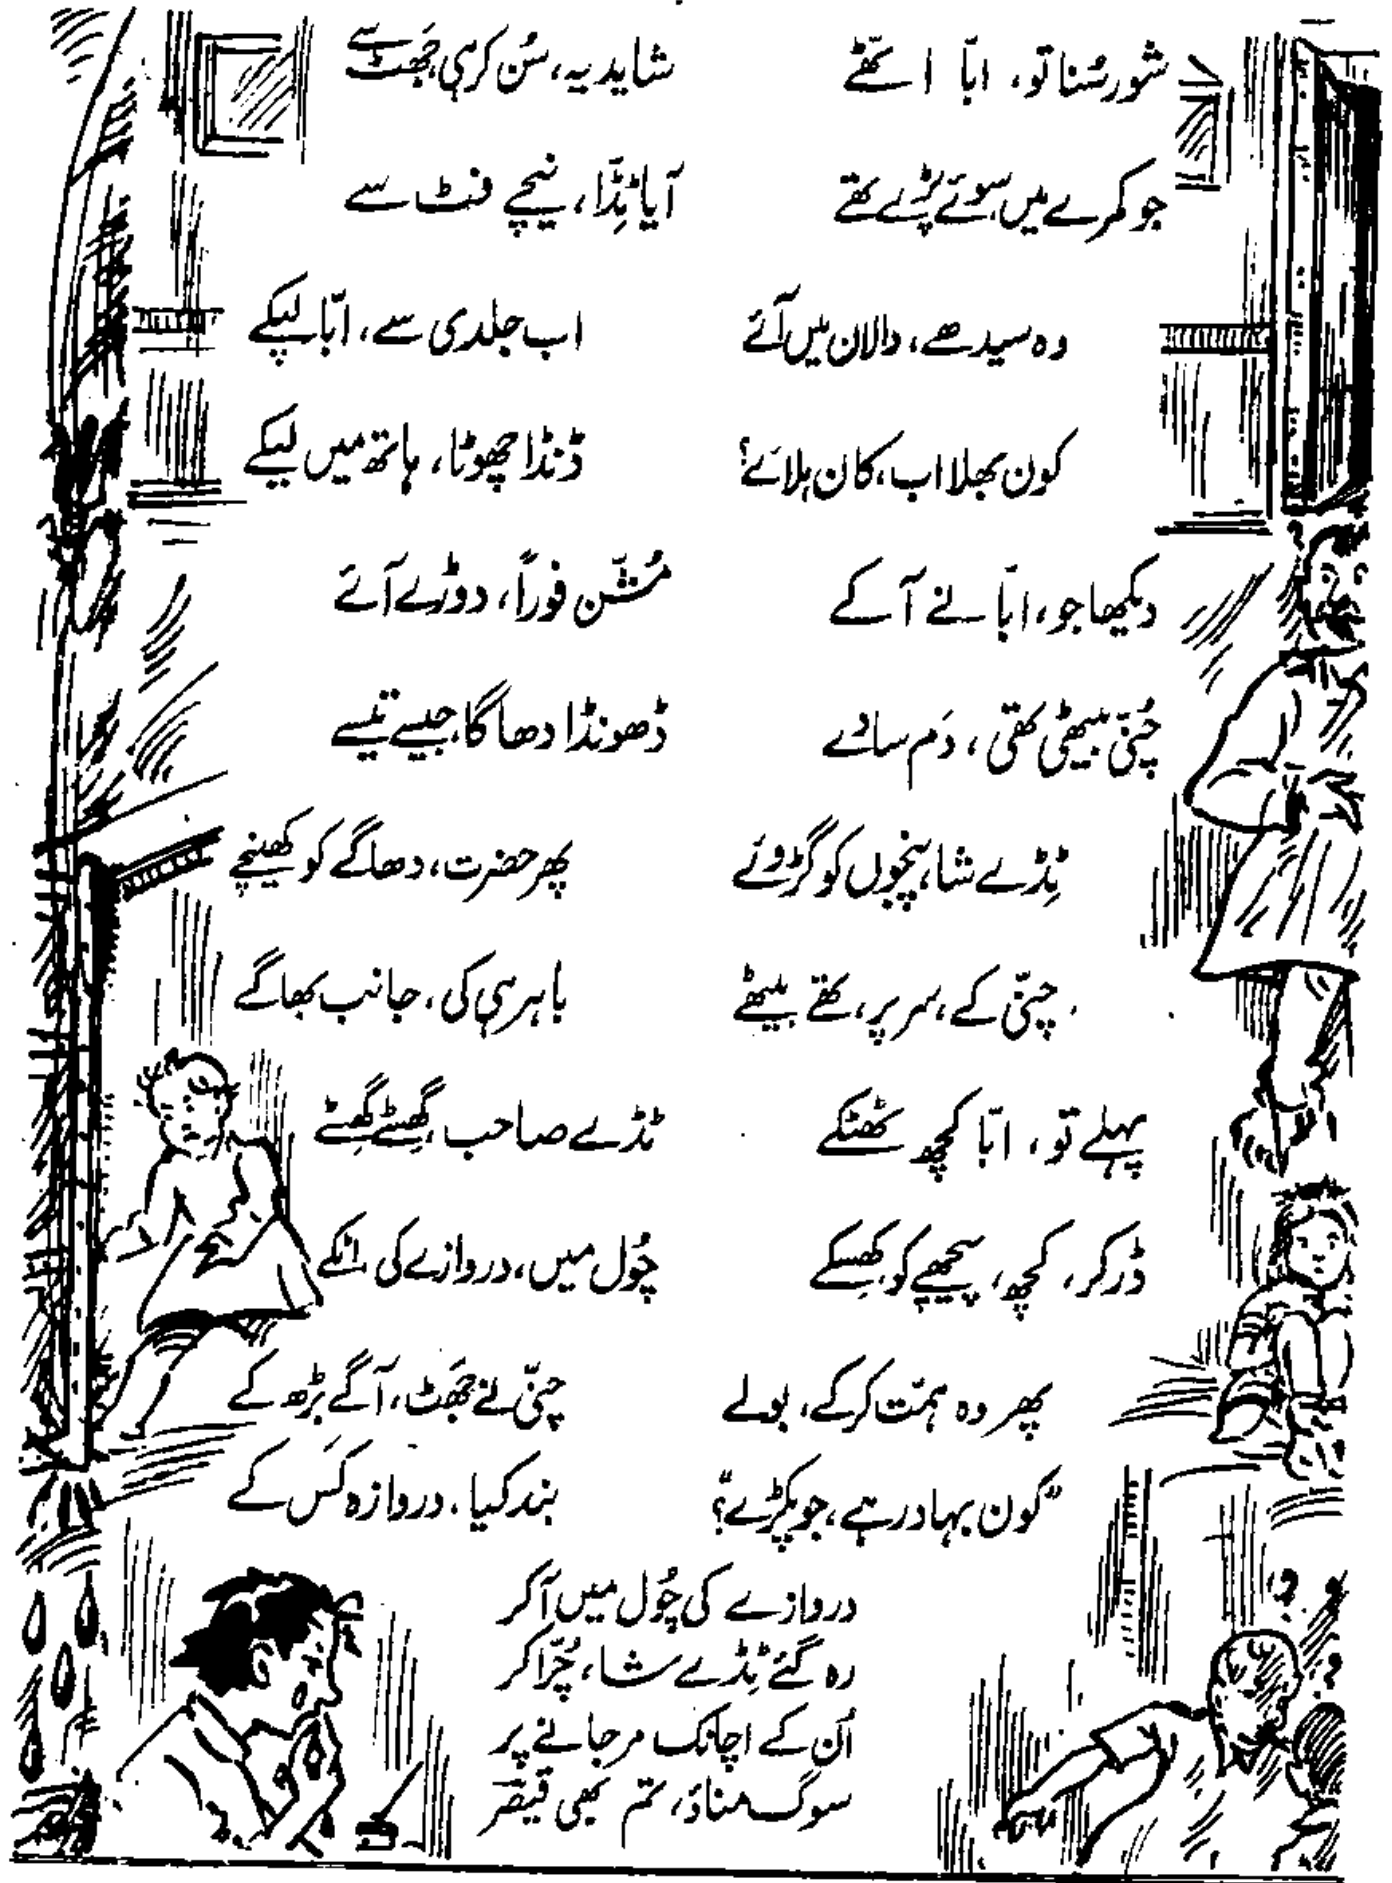 شور سُنا تو، ابّا اٹھّے
جو کمرے میں سوئے پڑے تھے
وہ سیدھے، دالان میں آئے
کون بھلا اب، کان ہلائے؟
دیکھا جو، ابّا نے آ کے
چُنّی بیٹھی تھی، دَم سادھے
ٹِڈّے شا، پنجوں کو گڑوئے
چنّی کے، سر پر، تھے بیٹھے
پہلے تو، ابّا کچھ ٹھٹکے
ڈر کر، کچھ، پیچھے کو، کھِسکے
پھر وہ ہمّت کر کے، بولے
"کون بہادر ہے، جو پکڑے"؟
شاید یہ، سُن کر ہی، جَھٹ سے
آیا ٹِڈّا، نیچے فٹ سے
اب جلدی سے، ابّا لپکے
ڈنڈا چھوٹا، ہاتھ میں لیکے
مُنّن فوراً، دوڑے آئے
ڈھونڈا دھاگا، جیسے تیسے
پھر حضرت، دھاگے کو کھینچے
باہر ہی کی، جانب بھاگے
ٹڈّے صاحب، گھِسٹے گھِسٹے
چُول میں، دروازے کی، اٹکے
چنّی نے جَھٹ، آگے بڑھ کے
بند کیا، دروازہ کَس کے
دروازے کی چُول میں آکر
رہ گئے ٹِڈّے شا، چُرّا کر
اُن کے اچانک مرجانے پر
سوگ مناؤ، تم بھی قیصَر